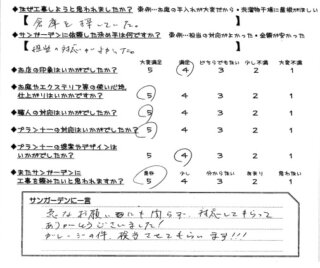 ◆なぜ工事しようと思われましたか？ 条例…お庭の手入れが大変だから・洗濯物干場に屋根がほしい
【 倉庫を探していた。 】
◆サンガーデンに依頼した決め手は何ですか？ 条例…担当の対応がよかった・金額が安かった
【 担当の対応がよかった。 】
大変満足 満足 どちらでもない 少し不満 大変不満
◆お店の印象はいかがでしたか？ 5 4 3 2 1
◆お庭やエクステリア等の使い心地、
仕上がりはいかがですか？ 5 4 3 2 1
◆職人の対応はいかがでしたか？ 5 4 3 2 1
◆プランナーの対応はいかがでしたか？ 5 4 3 2 1
◆プランナーの提案やデザインは
いかがでしたか？ 5 4 3 2 1
◆またサンガーデンに
工事を頼みたいと思われますか？ 5 4 3 2 1
是非 少し 分からない あまり 思わない
サンガーデンに一言
急なお願いにも関らず、対応してもらって
ありがとうございました！
担当させてもらいます!!!